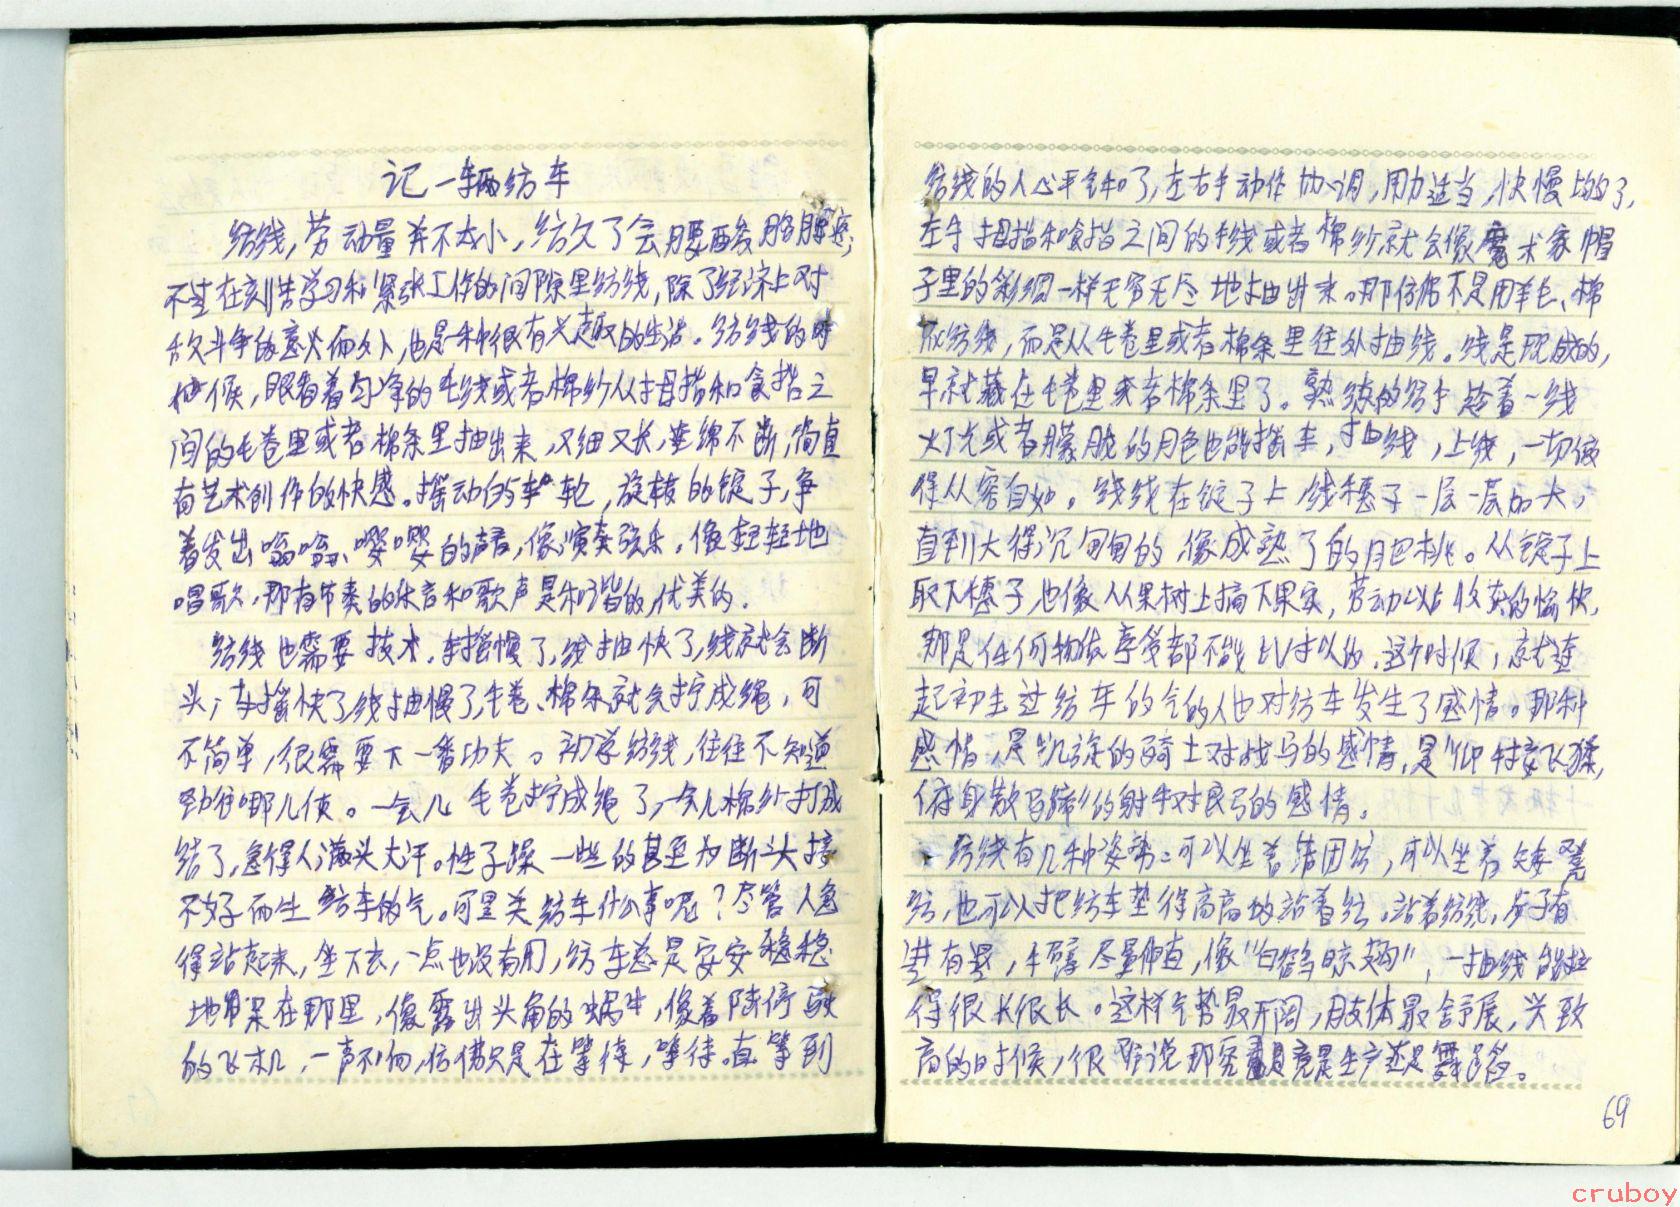 记一辆纺车
纺线，劳动量并不太小，纺久了会腰酸胳膊疼；
不过在刻苦学习和紧张工作的间隙里纺线，除了经济上对
敌斗争的意义而外，也是一种很有兴趣的生活。纺线的时
候，眼看着匀净的毛线或者棉纱从拇指和食指之
间的毛卷里或者棉条里抽出来，又细又长，连绵不断，简直
有艺术创作的快感。摇动的车轮，旋转的锭子，争
着发出嗡嗡、嘤嘤的声音，像演奏弦乐，像轻轻地
唱歌，那有节奏的乐音和歌声是和谐的，优美的。
纺线也需要技术。车摇慢了，线抽快了，线就会断
头；车摇快了，线抽慢了，毛卷、棉条就会拧成绳，可
不简单，很需要下一番功夫。初学纺线，往往不知道
劲往哪儿使。一会儿毛卷拧成绳了，一会儿棉纱打成
结了，急得人满头大汗。性子躁一些的甚至为断头接
不好而生纺车的气。可是关纺车什么事呢？尽管人急
得站起来，坐下去，一点也没有用，纺车总是安安稳稳
地呆在那里，像露出头角的蜗牛，像着陆停驶
的飞机，一声不响，仿佛只是在等待，等待。直等到
纺线的人心平气和了，左右手动作协调，用力适当，快慢均匀了，
左手拇指和食指之间的毛线或者棉纱就会像魔术家帽
子里的彩绸一样无穷无尽地抽出来。那仿佛不是用羊毛、棉
花纺线，而是从毛卷里或者棉条里往外抽线。线是现成的，
早就藏在毛卷里或者棉条里了。熟练的纺手趁着一线
灯光或者朦胧的月色也能摇车，抽线，上线，一切做
得从容自如。线绕在锭子上，线穗子一层一层加大，
直到大得沉甸甸的，像成熟了的肥桃。从锭子上
取下穗子，也像从果树上摘下果实，劳动以后收获的愉快，
那是任何物质享受都不能比拟的。这个时候，就连
起初生过纺车的气的人也对纺车发生了感情。那种
感情，是凯旋的骑士对战马的感情，是“仰手接飞猱，
俯身散马蹄”的射手对良弓的感情。
纺线有几种姿势：可以坐着蒲团纺，可以坐着矮凳
纺，也可以把纺车垫得高高的站着纺。站着纺线，步子有
进有退，手臂尽量伸直，像“白鹤晾翅”，一抽线能拉
得很长很长。这样气势最开阔，肢体最舒展，兴致
高的时候，很难说那究竟是生产还是舞蹈。
69
cruboy